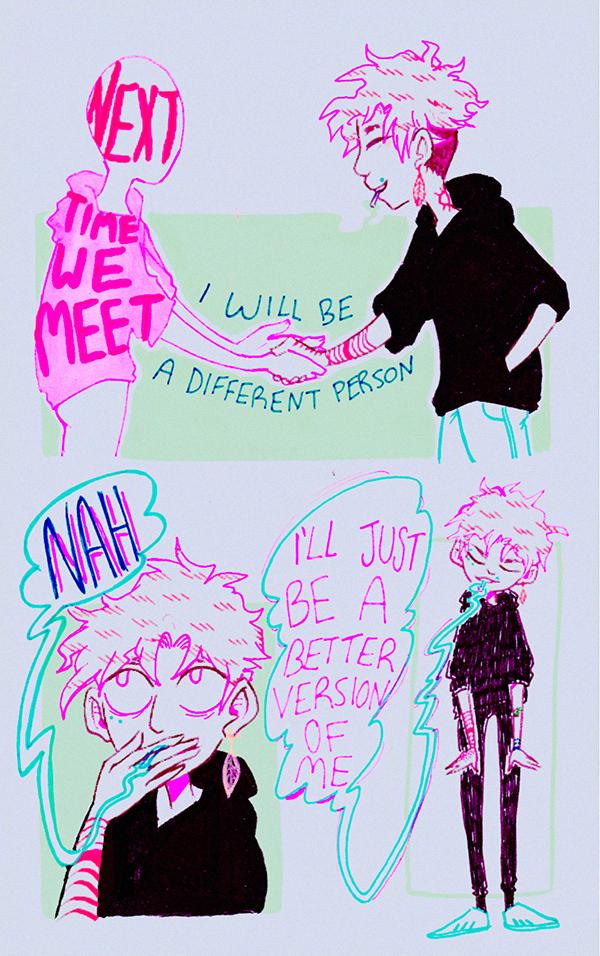 NEXT
TIME
WE
MEET
I WILL BE
A DIFFERENT PERSON
NAH
I'LL JUST
BE A
BETTER
VERSION
OF
ME